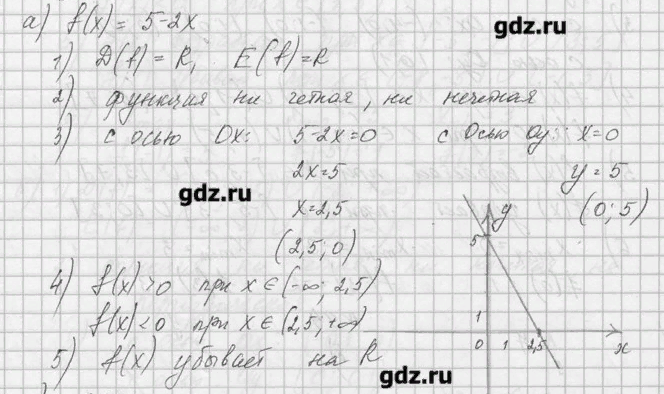 а) f(x) = 5-2x
gdz.ru
1) D(f) = R, E(f)=R
2) функция ни четная, ни нечетная
3) с осью Ox: 5-2x=0 с осью Oy: x=0
gdz.ru
2x=5 y=5
x=2,5 (0; 5)
(2,5; 0)
y
5
4) f(x)>0 при x∈(-∞; 2,5)
f(x)<0 при x∈(2,5; +∞)
1
0 1 2,5 x
5) f(x) убывает на R
gdz.ru